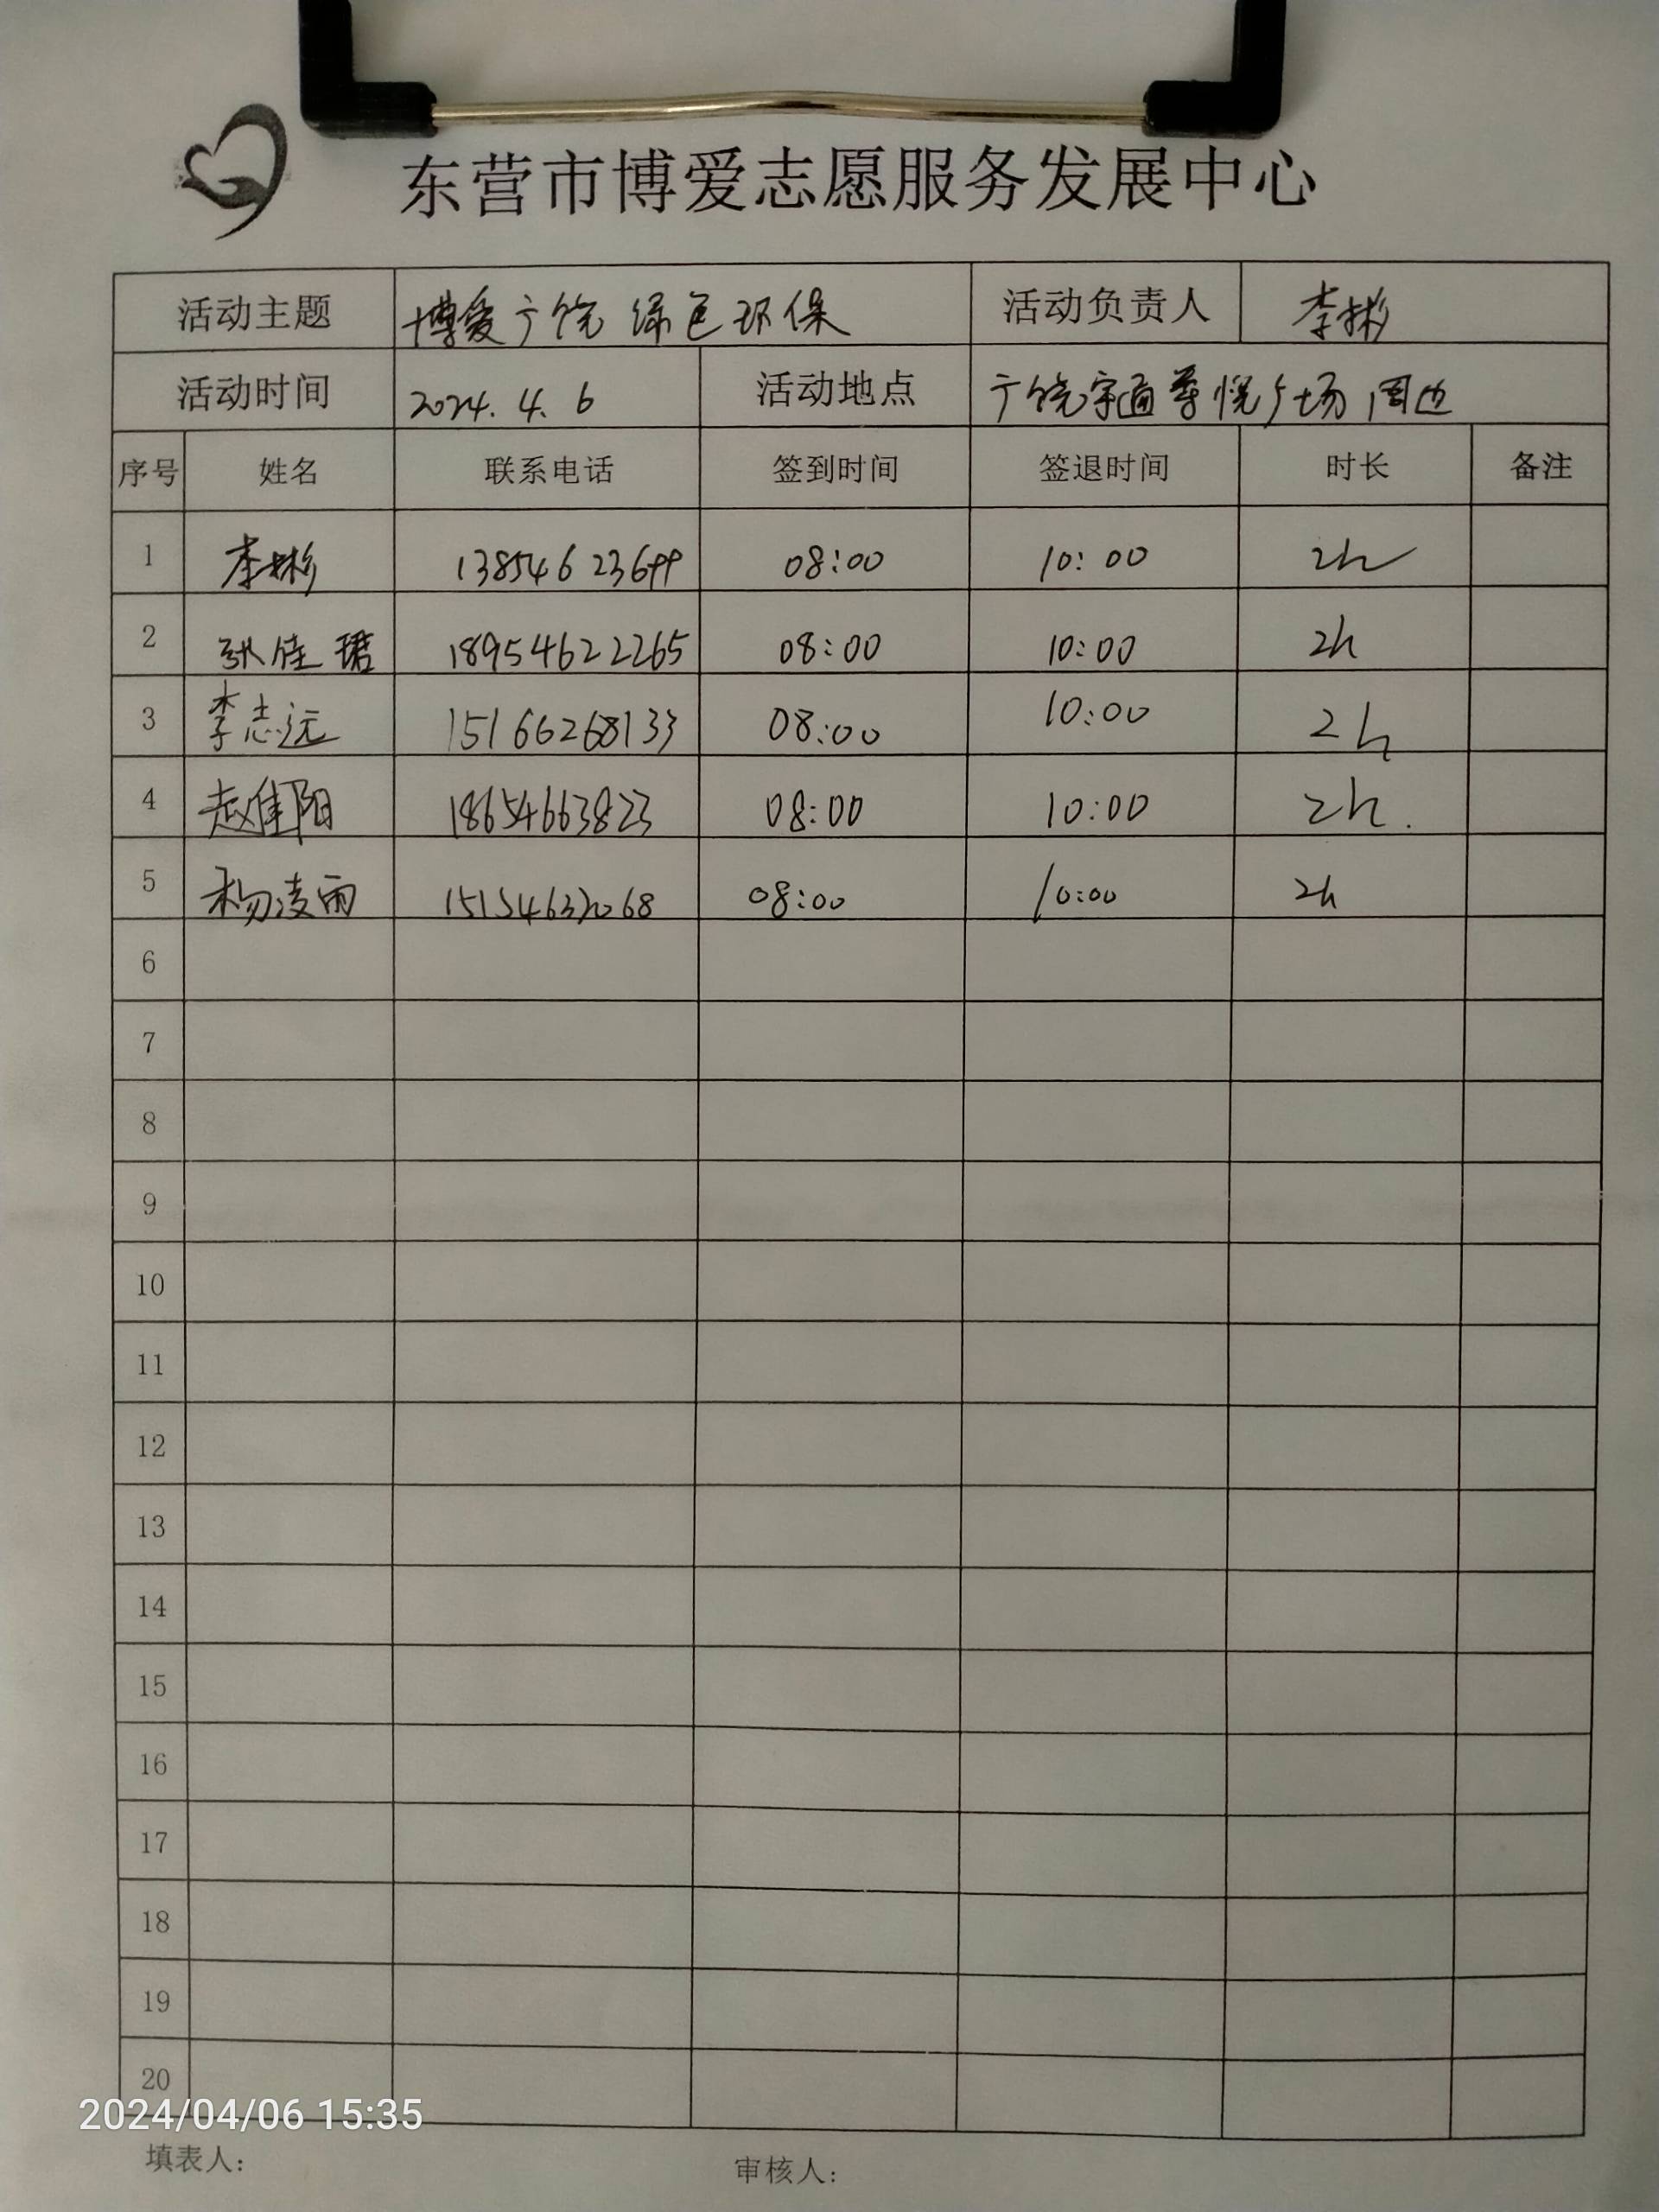 东营市博爱志愿服务发展中心
活动主题 博爱广饶 绿色环保 活动负责人 李彬
活动时间 2024.4.6 活动地点 广饶宇通尊悦广场周边
序号 姓名 联系电话 签到时间 签退时间 时长 备注
1 李彬 13854623699 08:00 10:00 2h
2 张佳珺 18954622265 08:00 10:00 2h
3 李志远 15166268133 08:00 10:00 2h
4 赵佳阳 18654663823 08:00 10:00 2h.
5 杨凌雨 08:00 10:00 2h
6
7
8
9
10
11
12
13
14
15
16
17
18
19
20
2024/04/06 15:35
填表人: 审核人: